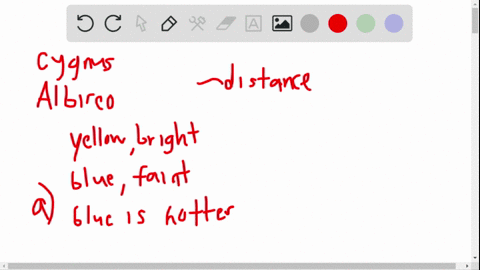 Cygnus
Albireo
~distance
yellow, bright
blue, faint
a) blue is hotter